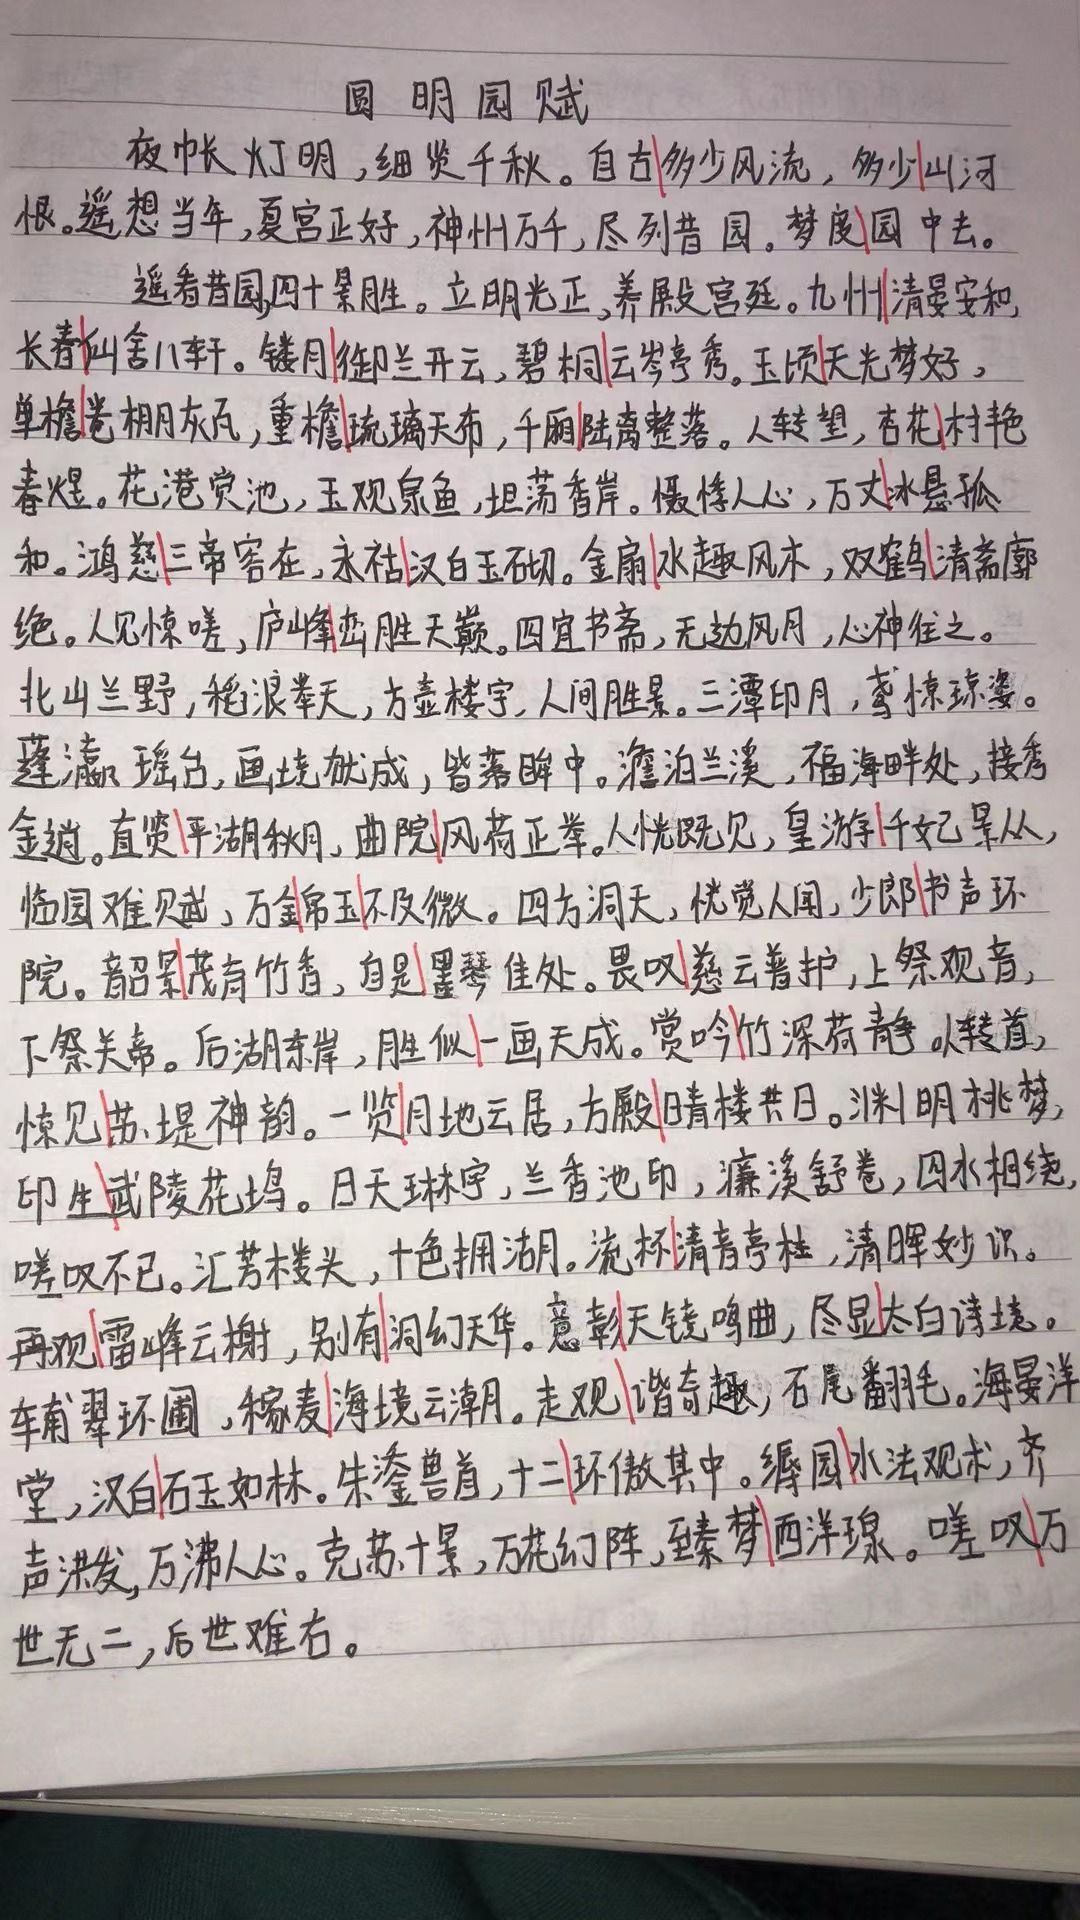 圆明园赋
夜帐灯明，细览千秋。自古多少风流，多少山河
恨。遥想当年，夏宫正好，神州万千，尽列昔园。梦度园中去。
遥看昔园，四十景胜。立明光正，养殿宫廷。九州清晏安和，
长春仙舍八轩。镂月御兰开云，碧桐云岑亭秀。玉顷天光梦好，
单檐卷棚灰瓦，重檐琉璃天布，千丽陆离整落。人转望，杏花村艳
春煜。花港赏池，玉观泉鱼，坦荡香岸。慑悸人心，万丈冰悬孤
和。鸿慈三帝容在，永祜汉白玉石切。金扇水趣风木，双鹤清斋廓
绝。人见惊嗟，庐峰峦胜天巅。四宜书斋，无边风月，心神往之。
北山兰野，稻浪举天，方壶楼宇，人间胜景。三潭印月，鸾惊琼鋈。
蓬瀛瑶台，画境犹成，皆落眸中。澹泊兰溪，福海畔处，接秀
金趟。直览平湖秋月，曲院风荷正举。人恍既见，皇游千妃景从，
临园难赋，万金帛玉不及微。四方洞天，恍觉人闻，少郎书声环
院。韶景茂育竹香，自是墨琴佳处。畏叹慈云普护，上祭观音，
下祭关帝。后湖东岸，胜似一画天成。赏吟竹深荷静。人转首，
惊见苏堤神韵。一览月地云居，方殿晴楼共日。渊明桃梦，
印生武陵花坞。日天琳宇，兰香池印，濂溪舒卷，四水相绕，
嗟叹不已。汇芳楼头，十色拥湖。流杯清音亭柱，清晖妙识。
再观雷峰云榭，别有洞幻天华。意彰天镜鸣曲，尽显太白诗境。
辅翠环圃，稼麦海境云潮。走观谐奇趣，石尾翻毛。海晏洋
堂，汉白石玉如林。朱鋈兽首，十二环傲其中。缛园水法观术，齐
声洪发，万沸人心。克苏十景，万花幻阵，至臻梦西洋璟。嗟叹万
世无二，后世难右。